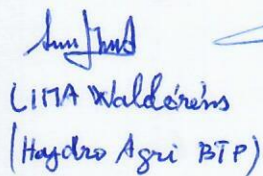 LIMA Waldéréns
(Haydro Agri BTP)